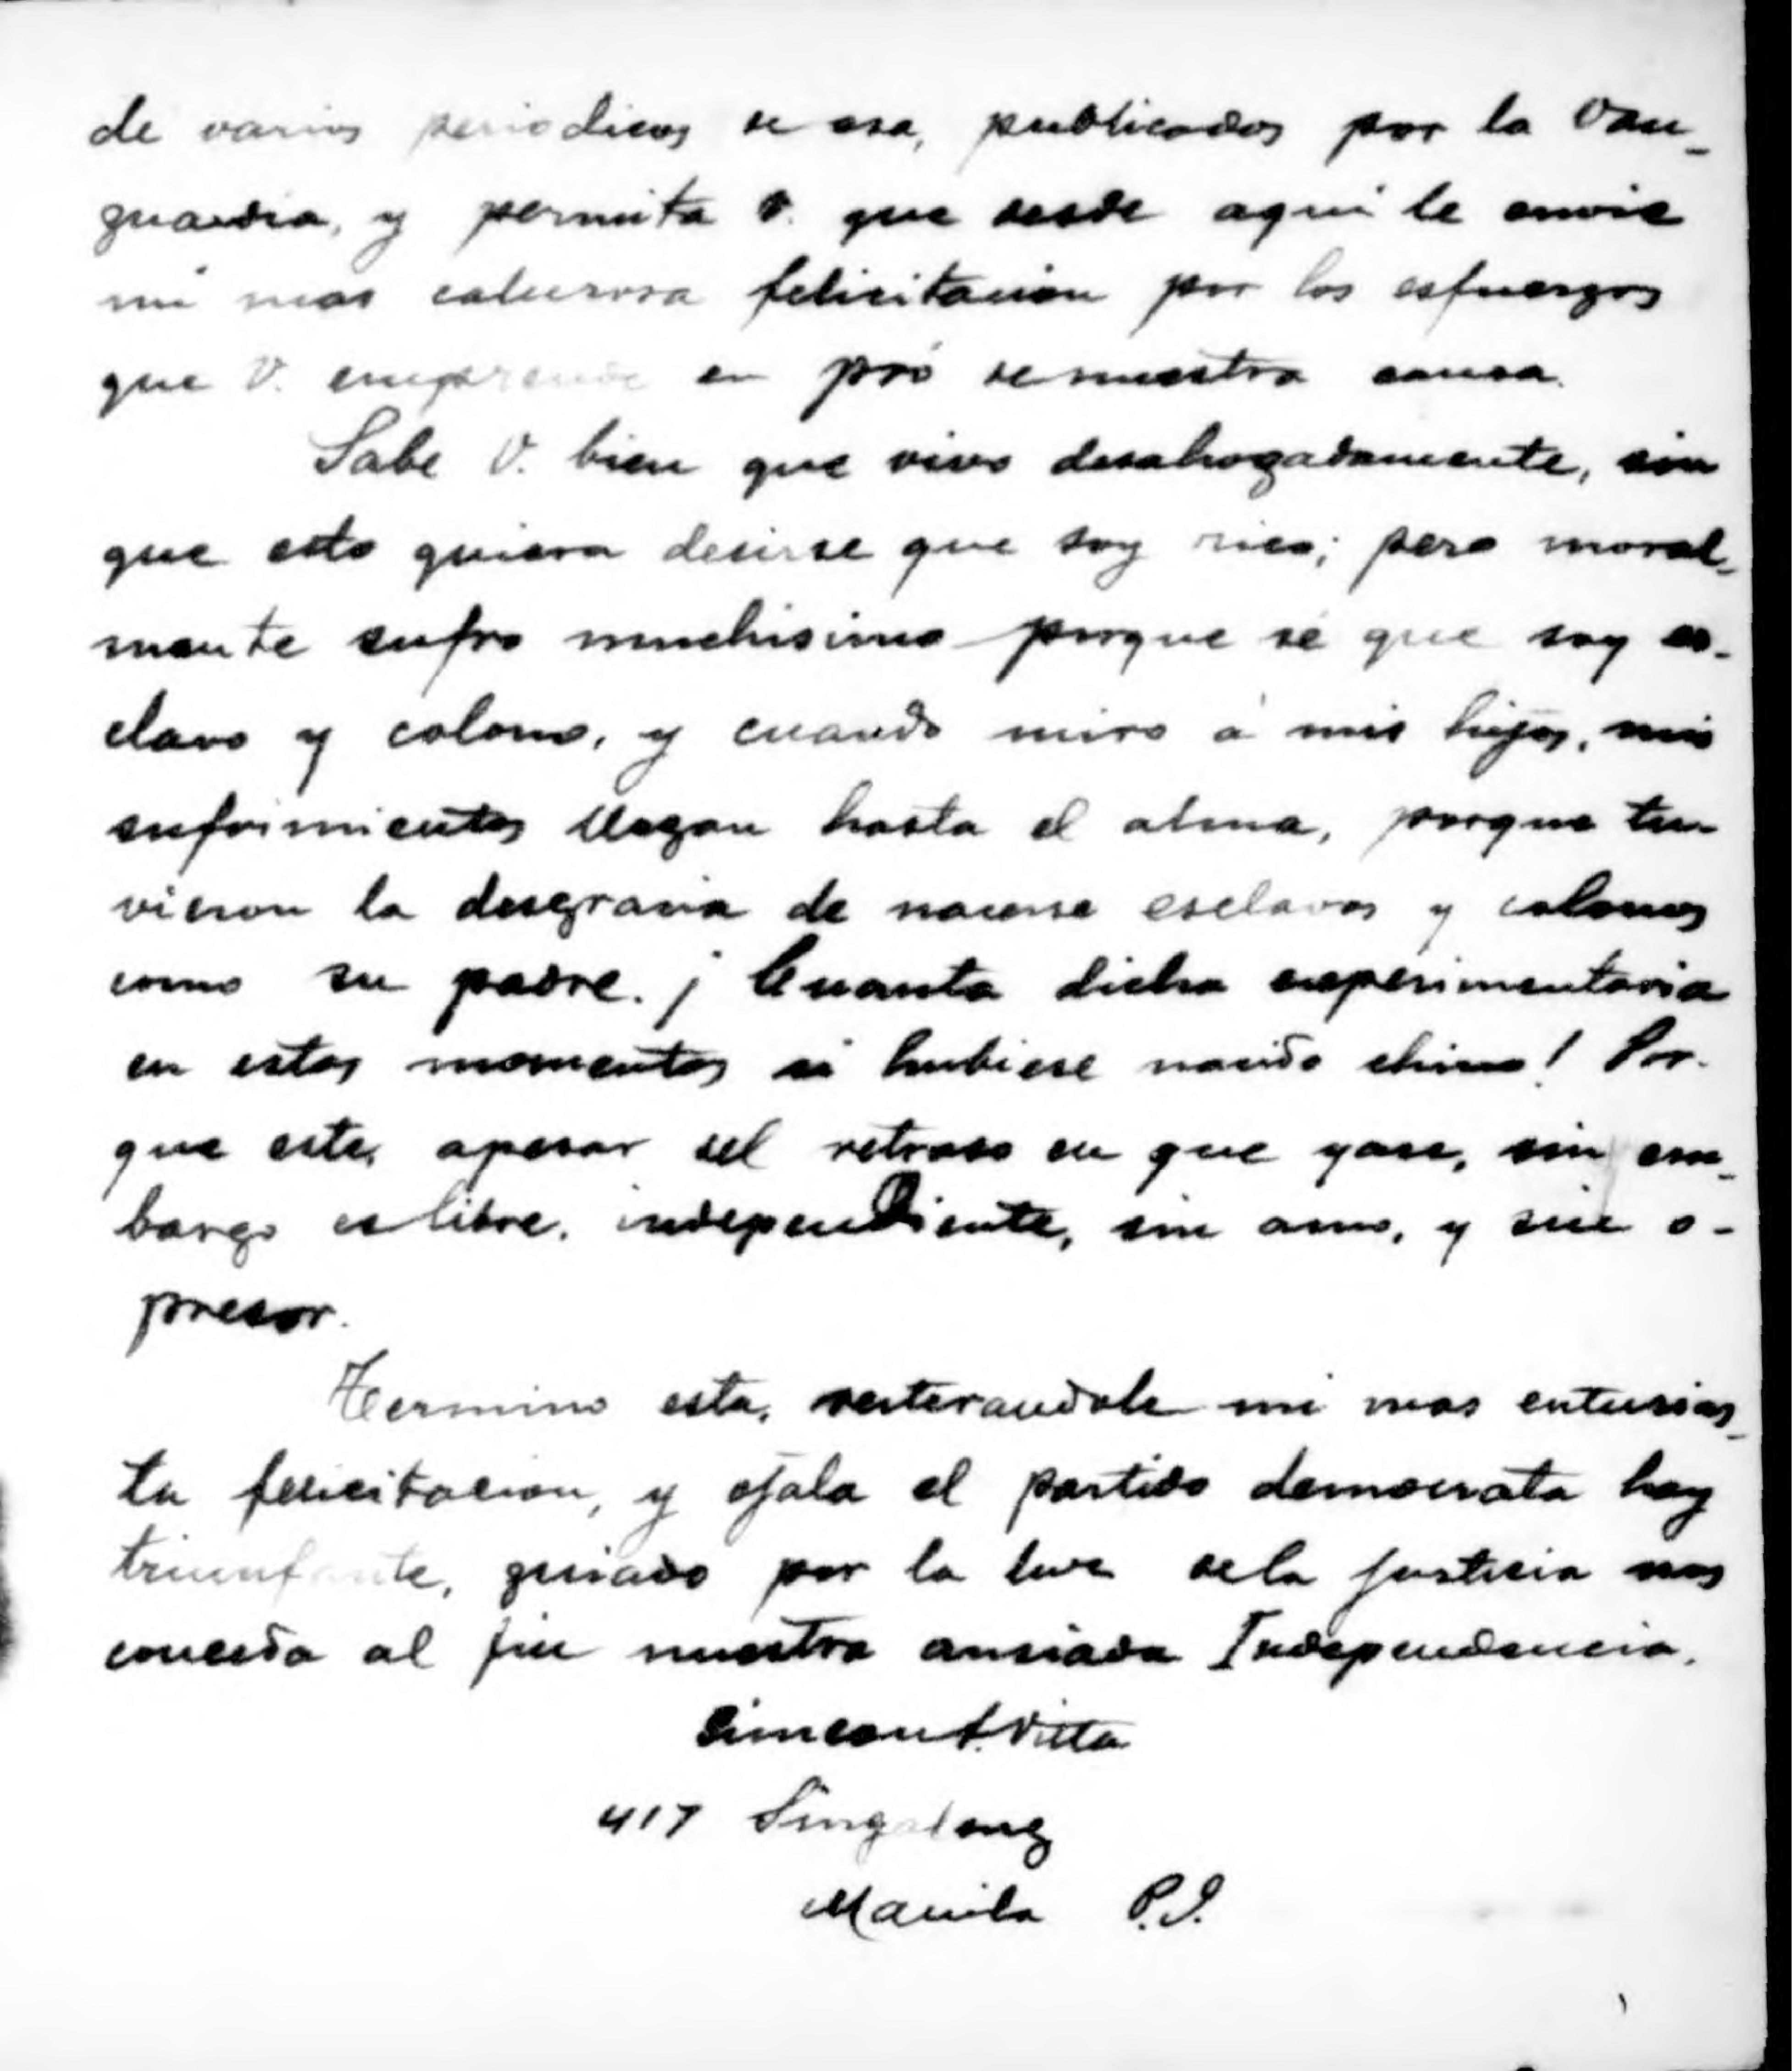 de varios periodicos de esa, publicados por la Van-
guardia, y permita V. que desde aqui le envie
mi mas calurosa felicitacion por los esfuerzos
que V. emprende en pró de nuestra causa.
Sabe V. bien que vivo desahogadamente, sin
que esto quiera decirse que soy rico; pero moral-
mente sufro muchisimo porque sé que soy es-
clavo y colono, y cuando miro á mis hijos, mis
sufrimientos llegan hasta el alma, porque tu-
vieron la desgracia de nacerse esclavos y colonos
como su padre. ¡Cuanta dicha experimentaria
en estos momentos si hubiese nacido chino! Por-
que este, apesar del retraso en que yase, sin em-
bargo es libre, independiente, sin amo, y sin o-
presor.
Termino esta, reiterandole mi mas entusias-
ta felicitacion, y ojala el partido democrata hoy
triunfante, guiado por la luz de la justicia nos
conceda al fin nuestra ansiada Independencia.
Simeon A. Villa
417 Singalong
Manila P.I.